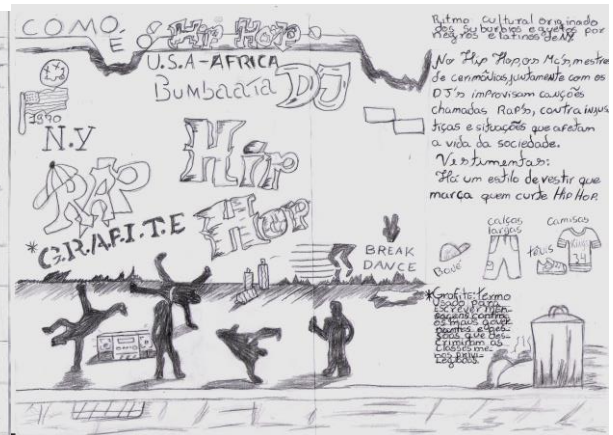 COMO
É
HIP HOP
U.S.A-AFRICA
Bumbaata DJ
1970
N.Y
RAP
HIP
HOP
*G.R.A.F.I.T.E
BREAK
DANCE
Ritmo cultural originado
dos suburbios e guetos por
negros e latinos de NY
No Hip Hop, os Mc's, mestre
de cerimônias, juntamente com os
DJ's improvisam canções
chamadas Rap's, contra injus
tiças e situações que afetam
a vida da sociedade.
Vestimentas:
Há um estilo de vestir que
marca quem curte Hip Hop.
Boné
calças
largas
têns
camisas
34
*Grafite: termo
usado para
escrever men-
sagens contra
os maus gover
nantes e pes
soas que des
criminam as
classes me-
nos privi-
legiadas.